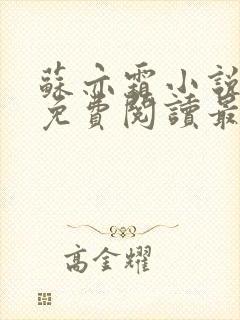 蘇亦霜小說
免費閱讀最
高金耀